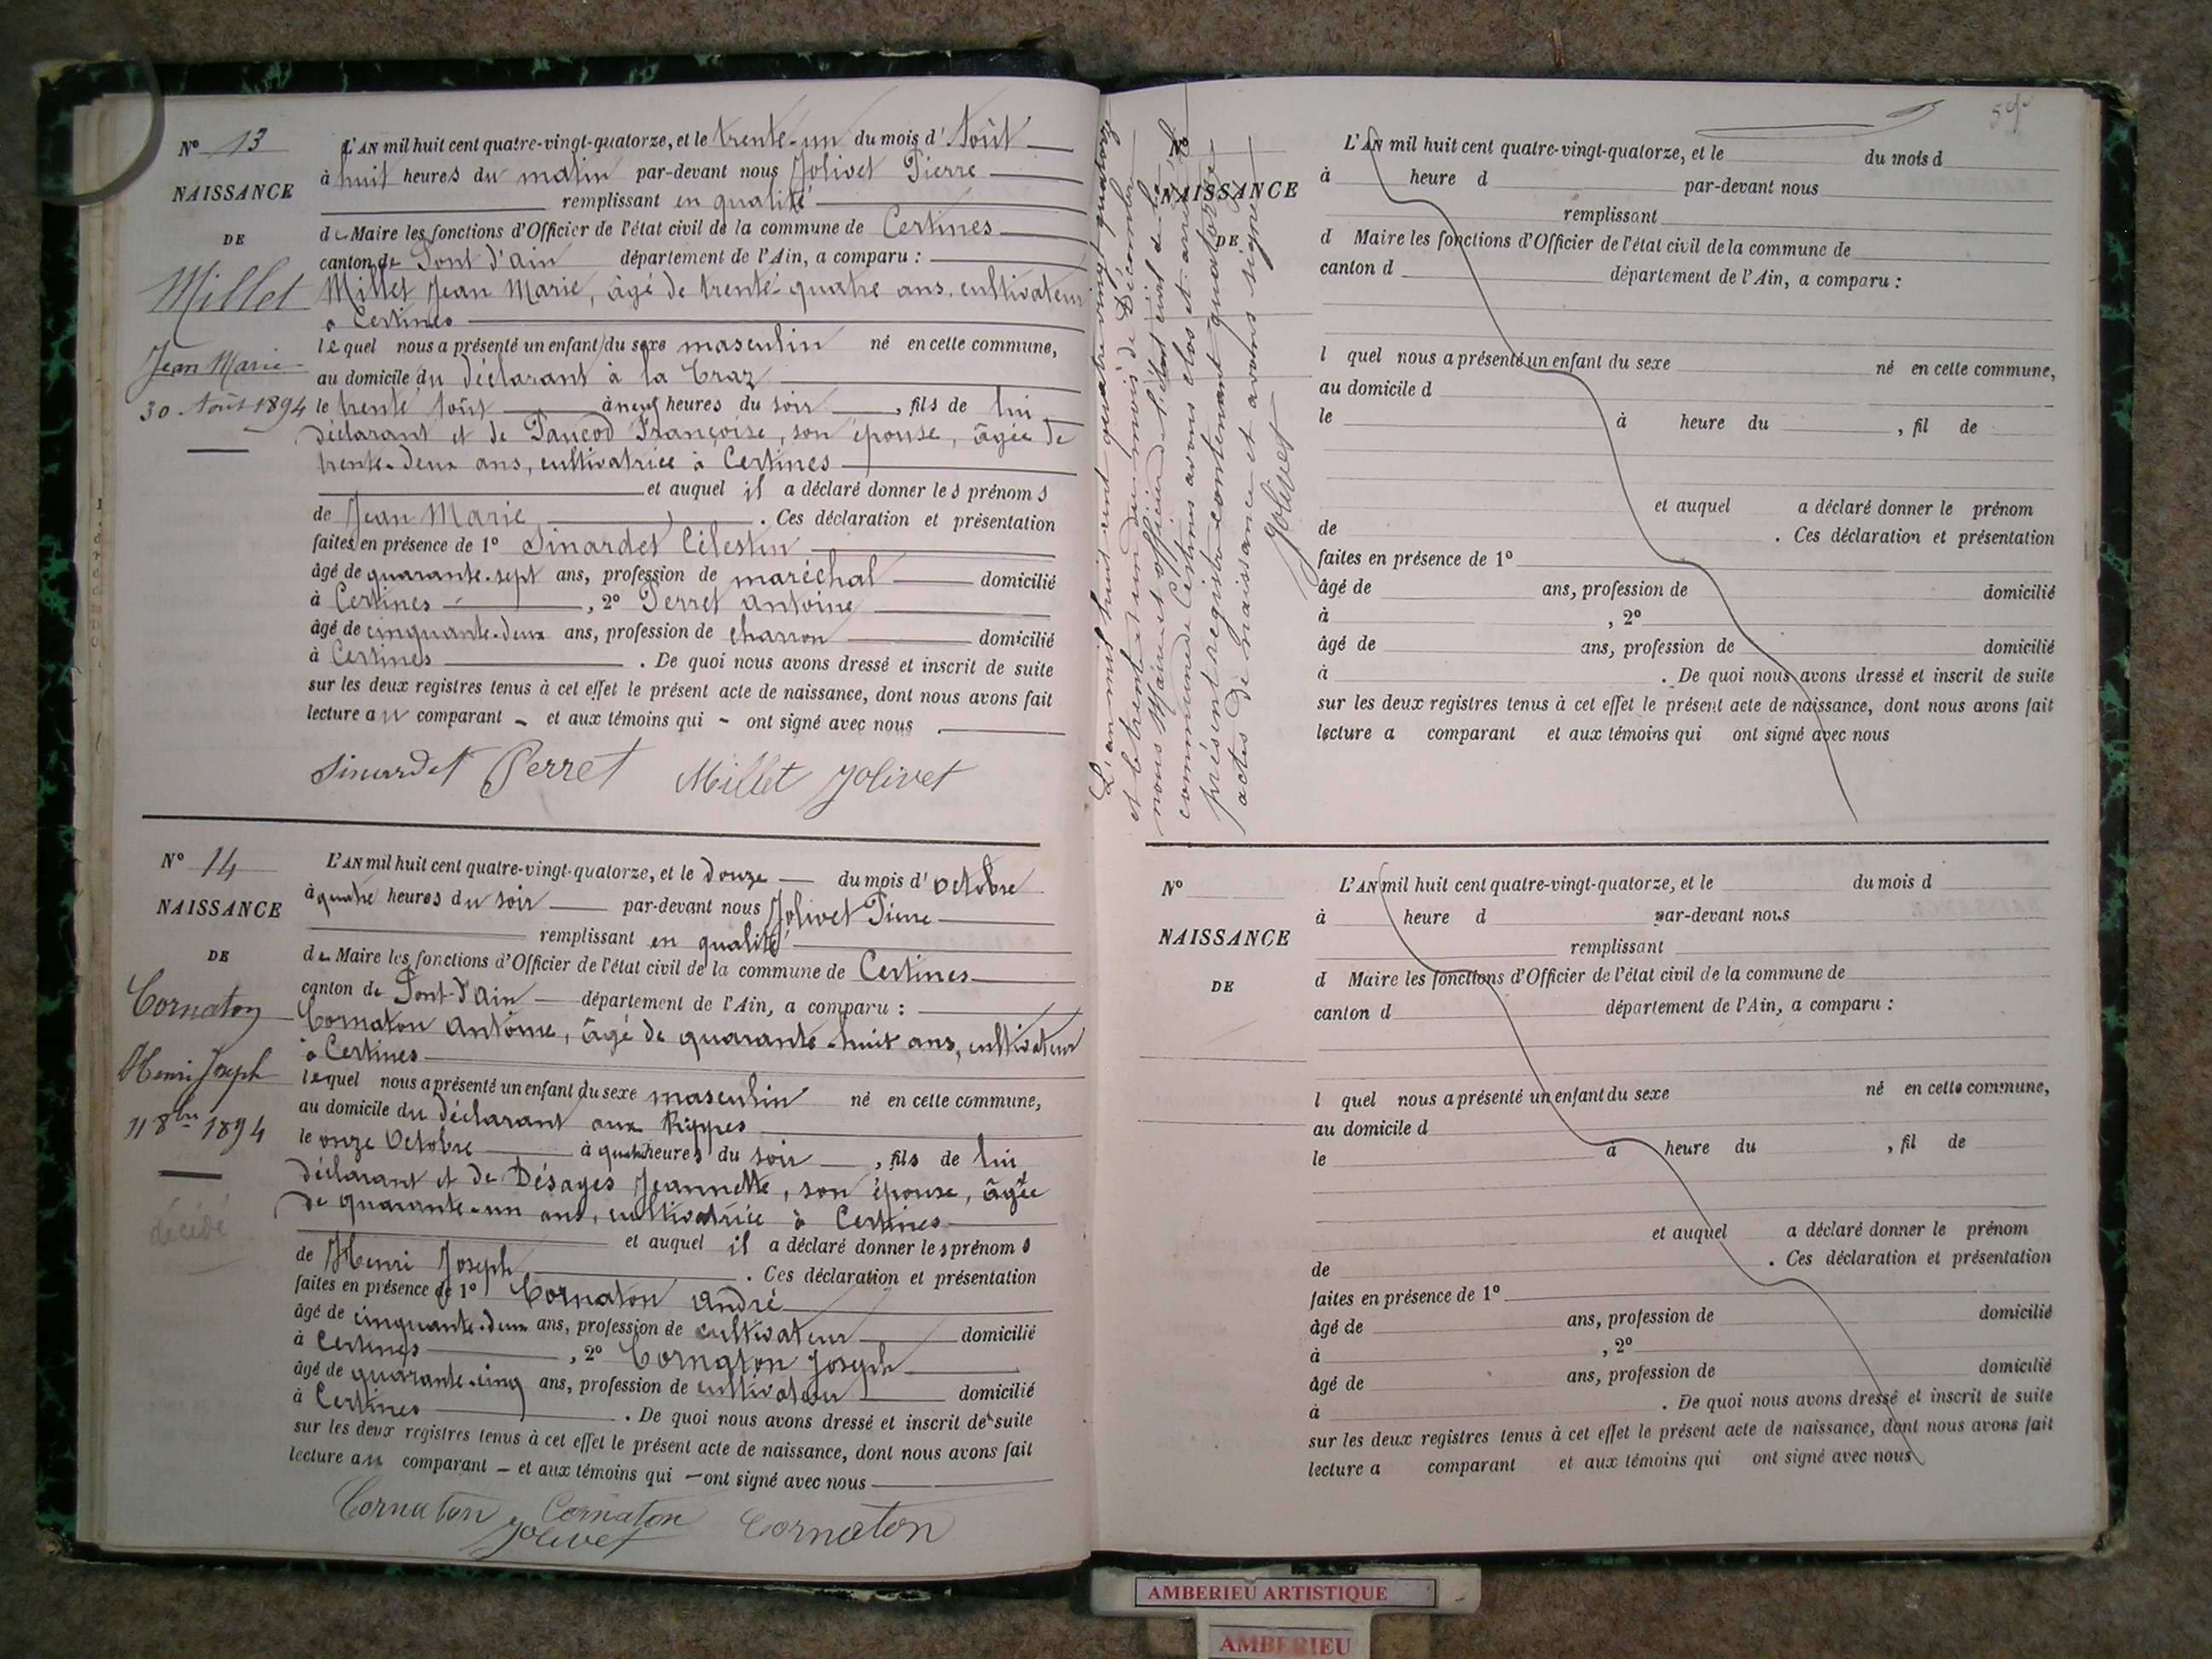 N° 13
NAISSANCE
DE
Millet
Jean Marie
30 Août 1894
L'AN mil huit cent quatre-vingt-quatorze, et le trente-un du mois d'Août
à huit heures du matin par-devant nous Jolivet Pierre
remplissant en qualité
de Maire les fonctions d'Officier de l'état civil de la commune de Certines
canton de Pont d'Ain département de l'Ain, a comparu :
Millet Jean Marie, âgé de trente-quatre ans, cultivateur
à Certines
lequel nous a présenté un enfant du sexe masculin né en cette commune,
au domicile du déclarant à la Craz
le trente Août à neuf heures du soir, fils de lui
déclarant et de Paucod Françoise, son épouse, âgée de
trente-deux ans, cultivatrice à Certines
et auquel il a déclaré donner les prénoms
de Jean Marie. Ces déclaration et présentation
faites en présence de 1° Sinardet Célestin
âgé de quarante-sept ans, profession de maréchal domicilié
à Certines, 2° Perret Antoine
âgé de cinquante-deux ans, profession de charron domicilié
à Certines. De quoi nous avons dressé et inscrit de suite
sur les deux registres tenus à cet effet le présent acte de naissance, dont nous avons fait
lecture au comparant - et aux témoins qui - ont signé avec nous
Sinardet Perret Millet Jolivet
N° 14
NAISSANCE
DE
Cornaton
Henri Joseph
11 8bre 1894
décédé
L'AN mil huit cent quatre-vingt-quatorze, et le douze du mois d'octobre
à quatre heures du soir par-devant nous Jolivet Pierre
remplissant en qualité
de Maire les fonctions d'Officier de l'état civil de la commune de Certines
canton de Pont-d'Ain département de l'Ain, a comparu :
Cornaton Antoine, âgé de quarante-huit ans, cultivateur
à Certines
lequel nous a présenté un enfant du sexe masculin né en cette commune,
au domicile du déclarant aux Rippes
le onze Octobre à quatre heures du soir, fils de lui
déclarant et de Désages Jeannette, son épouse, âgée
de quarante-un ans, cultivatrice à Certines
et auquel il a déclaré donner les prénoms
de Henri Joseph. Ces déclaration et présentation
faites en présence de 1° Cornaton André
âgé de cinquante-deux ans, profession de cultivateur domicilié
à Certines, 2° Cornaton Joseph
âgé de quarante-cinq ans, profession de cultivateur domicilié
à Certines. De quoi nous avons dressé et inscrit de suite
sur les deux registres tenus à cet effet le présent acte de naissance, dont nous avons fait
lecture au comparant - et aux témoins qui - ont signé avec nous
Cornaton Cornaton Cornaton
Jolivet
L'an mil huit cent quatre vingt quatorze
et le trente et un du mois de Décembre
nous Maire et officier de l'état civil de la
commune de Certines avons clos et arrêté le
présent registre contenant quatorze
actes de naissance et avons signé
Jolivet
NAISSANCE
DE
L'AN mil huit cent quatre-vingt-quatorze, et le du mois d
à heure d par-devant nous
remplissant
d Maire les fonctions d'Officier de l'état civil de la commune de
canton d département de l'Ain, a comparu :
l quel nous a présenté un enfant du sexe né en cette commune,
au domicile d
le à heure du , fil de
et auquel a déclaré donner le prénom
de . Ces déclaration et présentation
faites en présence de 1°
âgé de ans, profession de domicilié
à , 2°
âgé de ans, profession de domicilié
à . De quoi nous avons dressé et inscrit de suite
sur les deux registres tenus à cet effet le présent acte de naissance, dont nous avons fait
lecture a comparant et aux témoins qui ont signé avec nous
N°
NAISSANCE
DE
L'AN mil huit cent quatre-vingt-quatorze, et le du mois d
à heure d par-devant nous
remplissant
d Maire les fonctions d'Officier de l'état civil de la commune de
canton d département de l'Ain, a comparu :
l quel nous a présenté un enfant du sexe né en cette commune,
au domicile d
le à heure du , fil de
et auquel a déclaré donner le prénom
de . Ces déclaration et présentation
faites en présence de 1°
âgé de ans, profession de domicilié
à , 2°
âgé de ans, profession de domicilié
à . De quoi nous avons dressé et inscrit de suite
sur les deux registres tenus à cet effet le présent acte de naissance, dont nous avons fait
lecture a comparant et aux témoins qui ont signé avec nous
AMBERIEU ARTISTIQUE
AMBERIEU